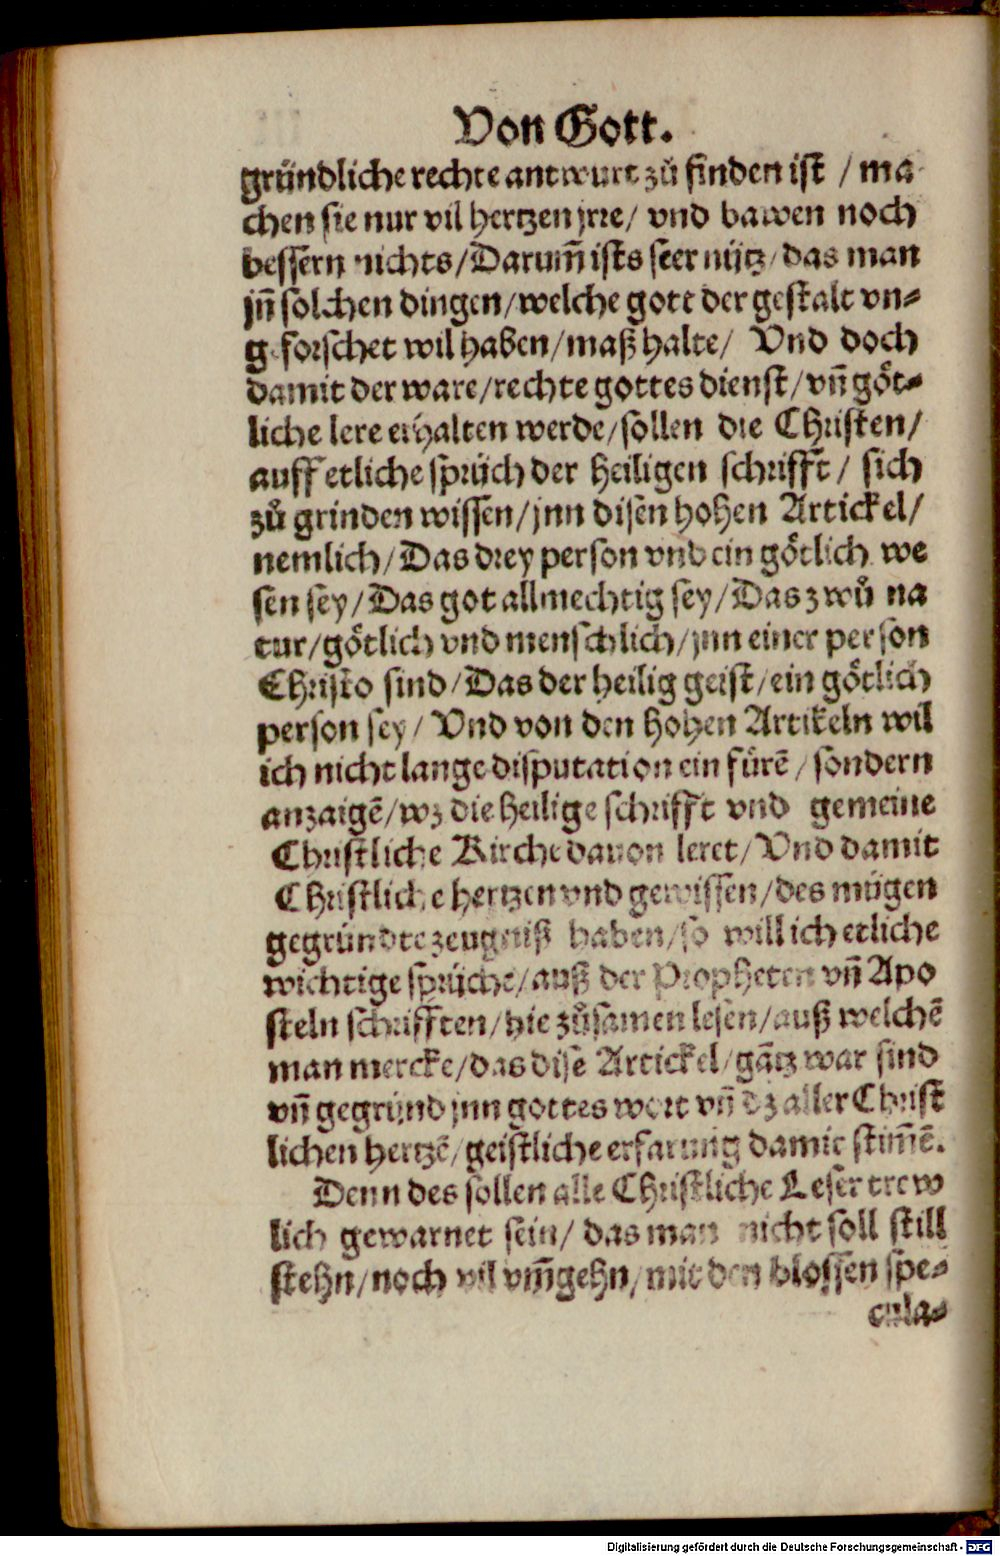 Von Gott.
gründliche rechte antwurt zů finden ist / ma
chen sie nur vil hertzen jrre / vnd bawen noch
bessern nichts / Darum̄ ists seer nütz / das man
jn̄ solchen dingen / welche gott der gestalt vn⸗
geforschet wil haben / maß halte / Vnd doch
damit der ware / rechte gottes dienst / vn̄ göt⸗
liche lere erhalten werde / sollen die Christen /
auff etliche sprüch der heiligen schrifft / sich
zů grinden wissen / jnn disen hohen Artickel /
nemlich / Das drey person vnd ein götlich we
sen sey / Das got allmechtig sey / Das zwů na
tur / götlich vnd menschlich / jnn einer person
Christo sind / Das der heilig geist / ein götlich
person sey / Vnd von den hohen Artikeln wil
ich nicht lange disputation ein fürē / sondern
anzaigē / wz die heilige schrifft vnd gemeine
Christliche Kirche dauon leret / Vnd damit
Christliche hertzen vnd gewissen / des mügen
gegründte zeugniß haben / so will ich etliche
wichtige sprüche / auß der Propheten vn̄ Apo
steln schrifften / hie zůsamen lesen / auß welchē
man mercke / das dise Artickel / gātz war sind
vn̄ gegründ jnn gottes wort vn̄ dz aller Christ
lichen hertzē / geistliche erfarung damit stim̄ē.
Denn des sollen alle Christliche Leser trew
lich gewarnet sein / das man nicht soll still
stehn / noch vil vm̄gehn / mit den blossen spe⸗
cula⸗
Digitalisierung gefördert durch die Deutsche Forschungsgemeinschaft - DFG